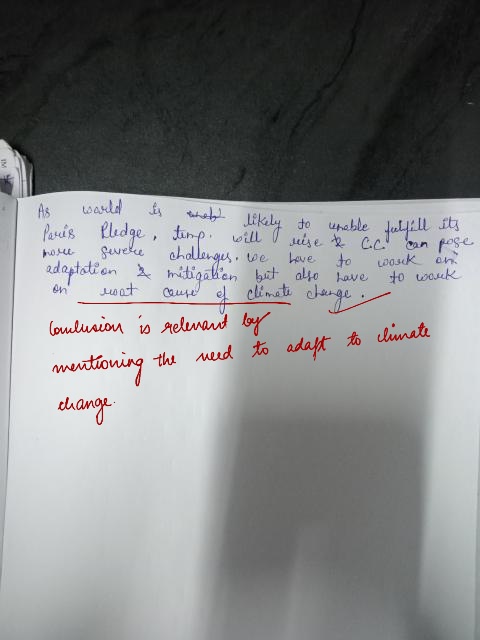 As world is likely to unable fulfill its
Paris Pledge, temp. will rise & C.C. can pose
more severe challenges. we have to work on
adaptation & mitigation but also have to work
on root cause of climate change.
Conclusion is relevant by
mentioning the need to adapt to climate
change.